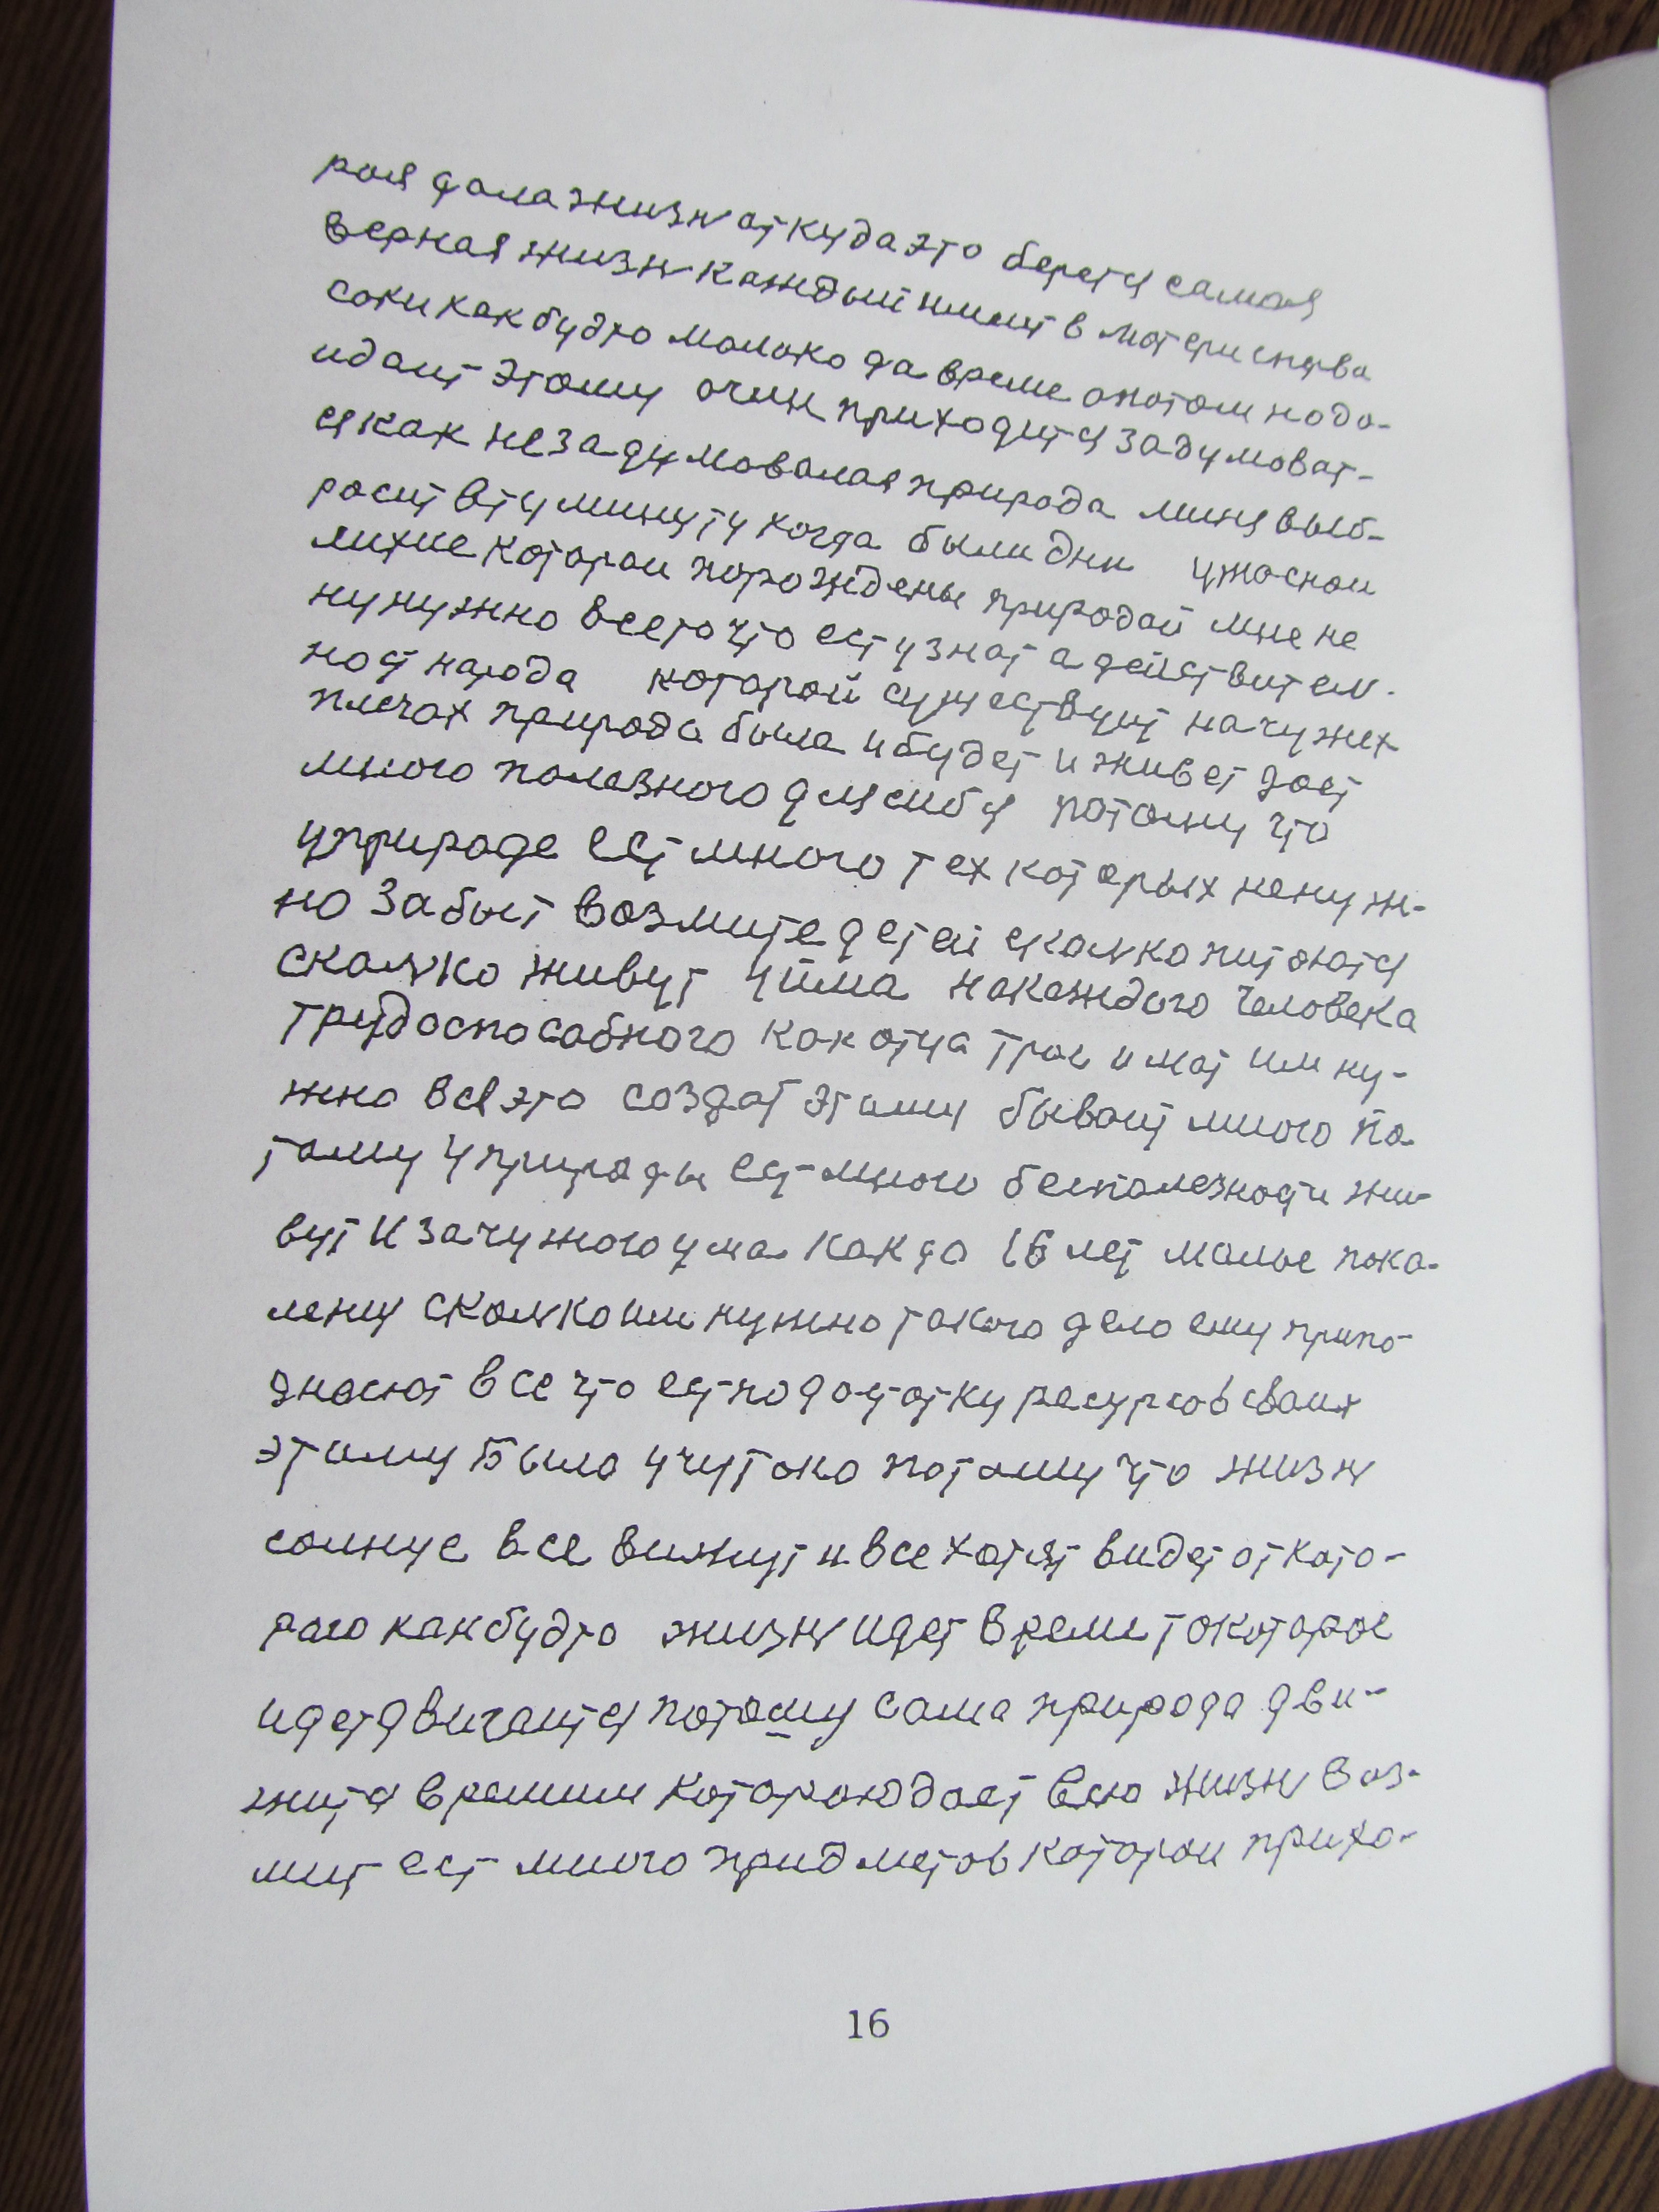 рая дала жизн откуда это берется самая
верная жизн каждый имеит в материнства
соки как будто молоко да време а потом надо-
идаит этому очин приходится задумоват-
ся как незадумовалая природа миня выб-
расит в ту минуту когда были дни ужаснои
лихие которои порождены природай мне не
нужно все то что ест узнат а действител-
ност народа которой существуит на чужих
плечах природа была и будет и живет дает
много полезного для сибя потому что
у природе ест много тех которых ненуж-
но забыт возмите детей сколко питаются
сколко живут ума накаждого человека
трудоспособного как отца трои и мат им ну-
жно вся это создат этаму бываит много по-
таму у природы ест много бесполезности жи-
вут из за чужого ума как до 16 лет малые пока-
лению сколко им нужно такого дело ему припо-
дносют все что ест по достатку ресурсов своих
этаму было учутоко потому что жизн
солнце все вижут и все хотят видет от като-
раго как будто жизн идет време то которое
идет двигаится потому сама природа дви-
жится времини котороюдает всю жизн воз-
мит ест много придметов которои прихо-
16